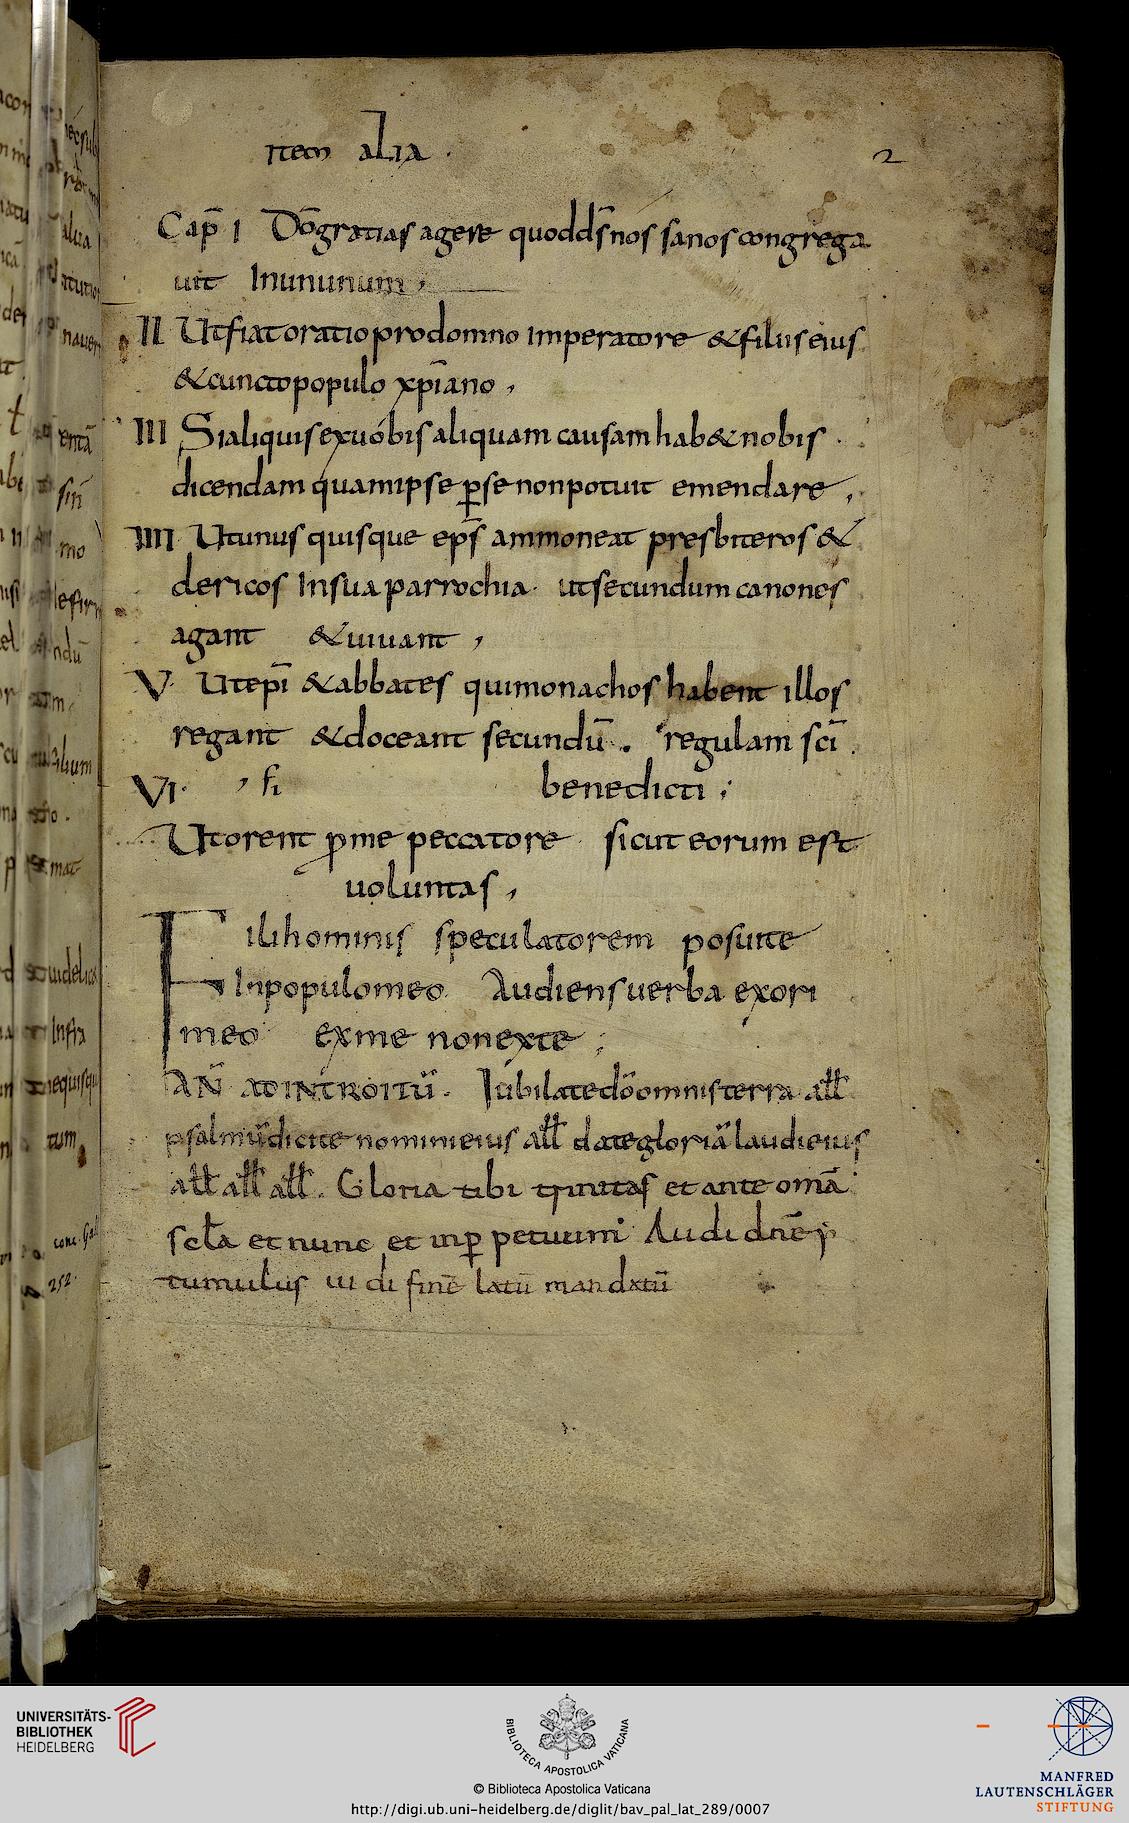 Item alia.
2
Cap̄ I Dō gratias agere quod d̄s nos sanos congrega
uit In unum,
II Ut fiat oratio pro domno Imperatore & filiis eius
& cuncto populo xp̄iano,
III Si aliquis ex uobis aliquam causam hab& nobis
dicendam quam ipse p̱ se non potuit emendare,
IIII Ut unus quisque ep̄s ammoneat presbiteros &
clericos In sua parrochia. ut secundum canones
agant & uiuant,
V. Ut ep̄i & abbates qui monachos habent illos
regant & doceant secundū. regulam sc̄i
VI. benedicti;
Ut orent p̱ me peccatore sicut eorum est
uoluntas,
Fili hominis speculatorem posui te
In populo meo. Audiens uerba ex ori
meo ex me non ex te;
AÑ AD INTROITŪ. Iubilate dō omnis terra all̄
psalmū dicite nomini eius all̄ date gloriā laudi eius
all̄ all̄ all̄. Gloria tibi trinitas et ante omā
scl̄a et nunc et in p̱petuum Audi dnē
tumulus fine latū mandatū
UNIVERSITÄTS-
BIBLIOTHEK
HEIDELBERG
BIBLIOTECA APOSTOLICA VATICANA
© Biblioteca Apostolica Vaticana
http://digi.ub.uni-heidelberg.de/diglit/bav_pal_lat_289/0007
MANFRED
LAUTENSCHLÄGER
STIFTUNG